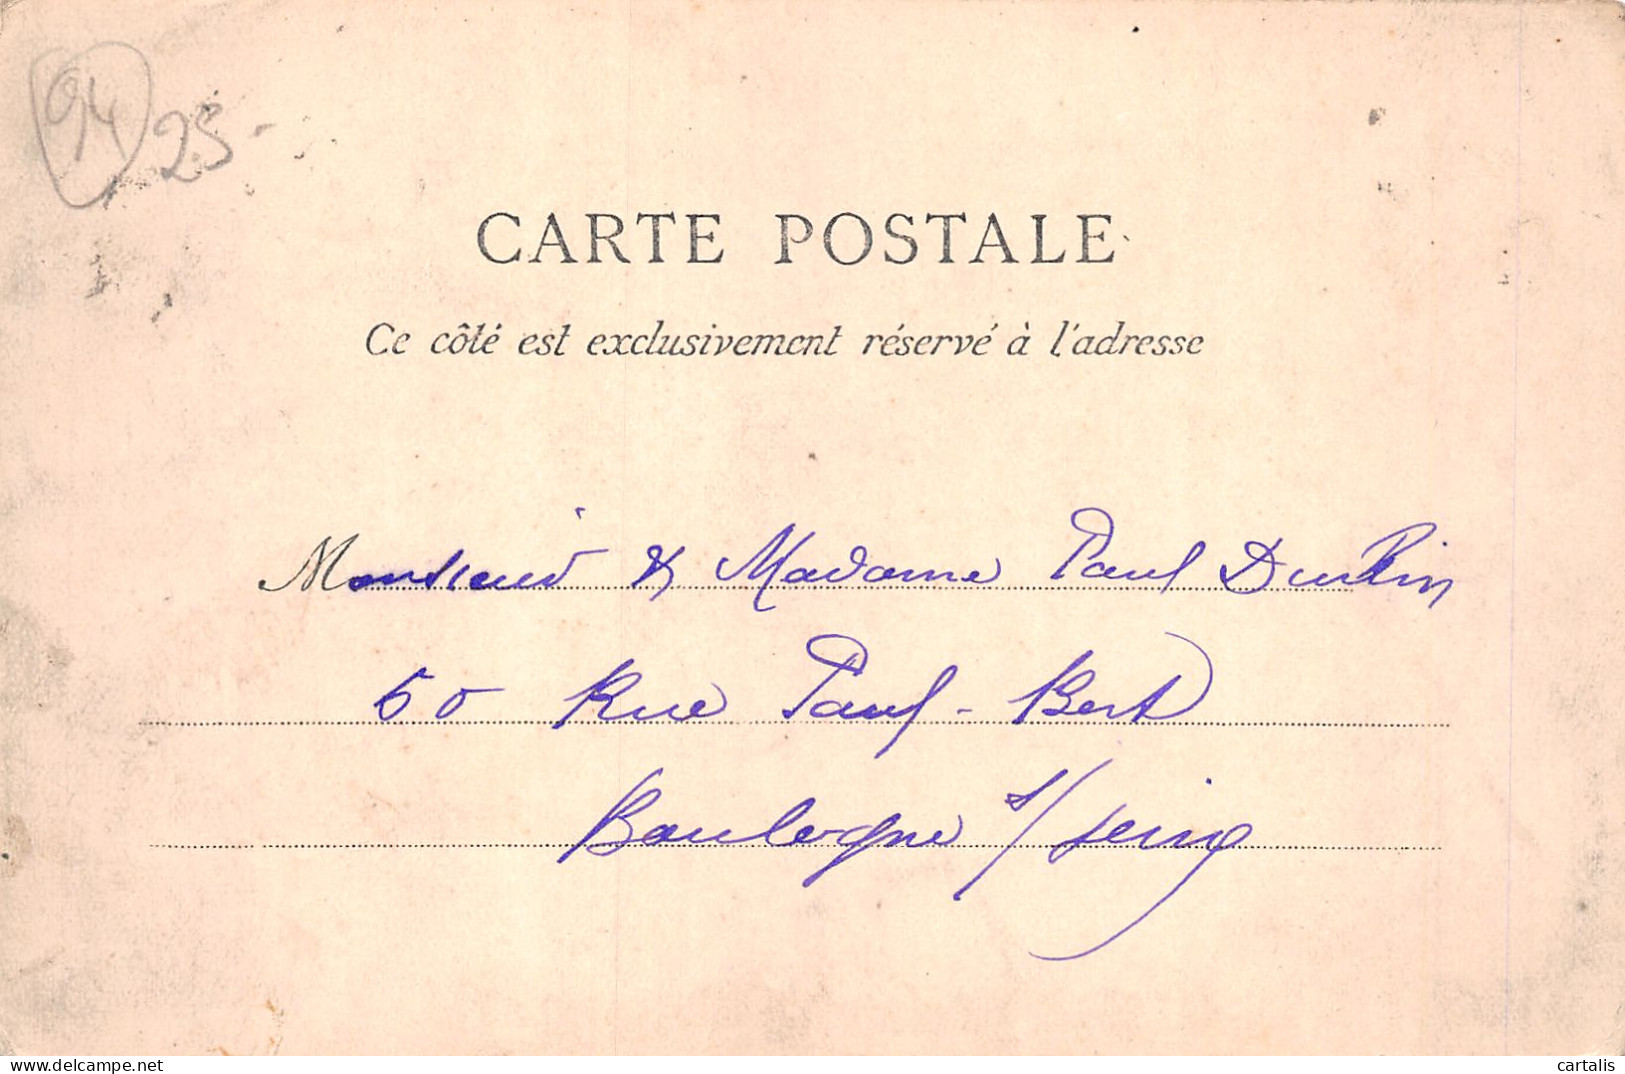 94 25-
CARTE POSTALE
Ce côté est exclusivement réservé à l'adresse
Monsieur & Madame Paul Durkin
60 Rue Paul-Bert
Boulogne s/ Seine
cartalis